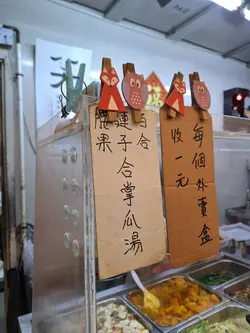 每個外賣盒
收一元
百合
蓮子合掌瓜湯
腰果